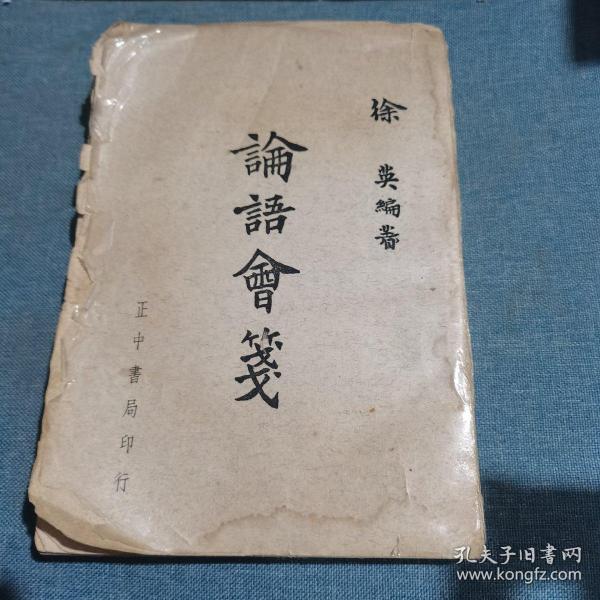 徐英編著
論語會箋
正中書局印行
孔夫子旧書网
www.kongfz.com